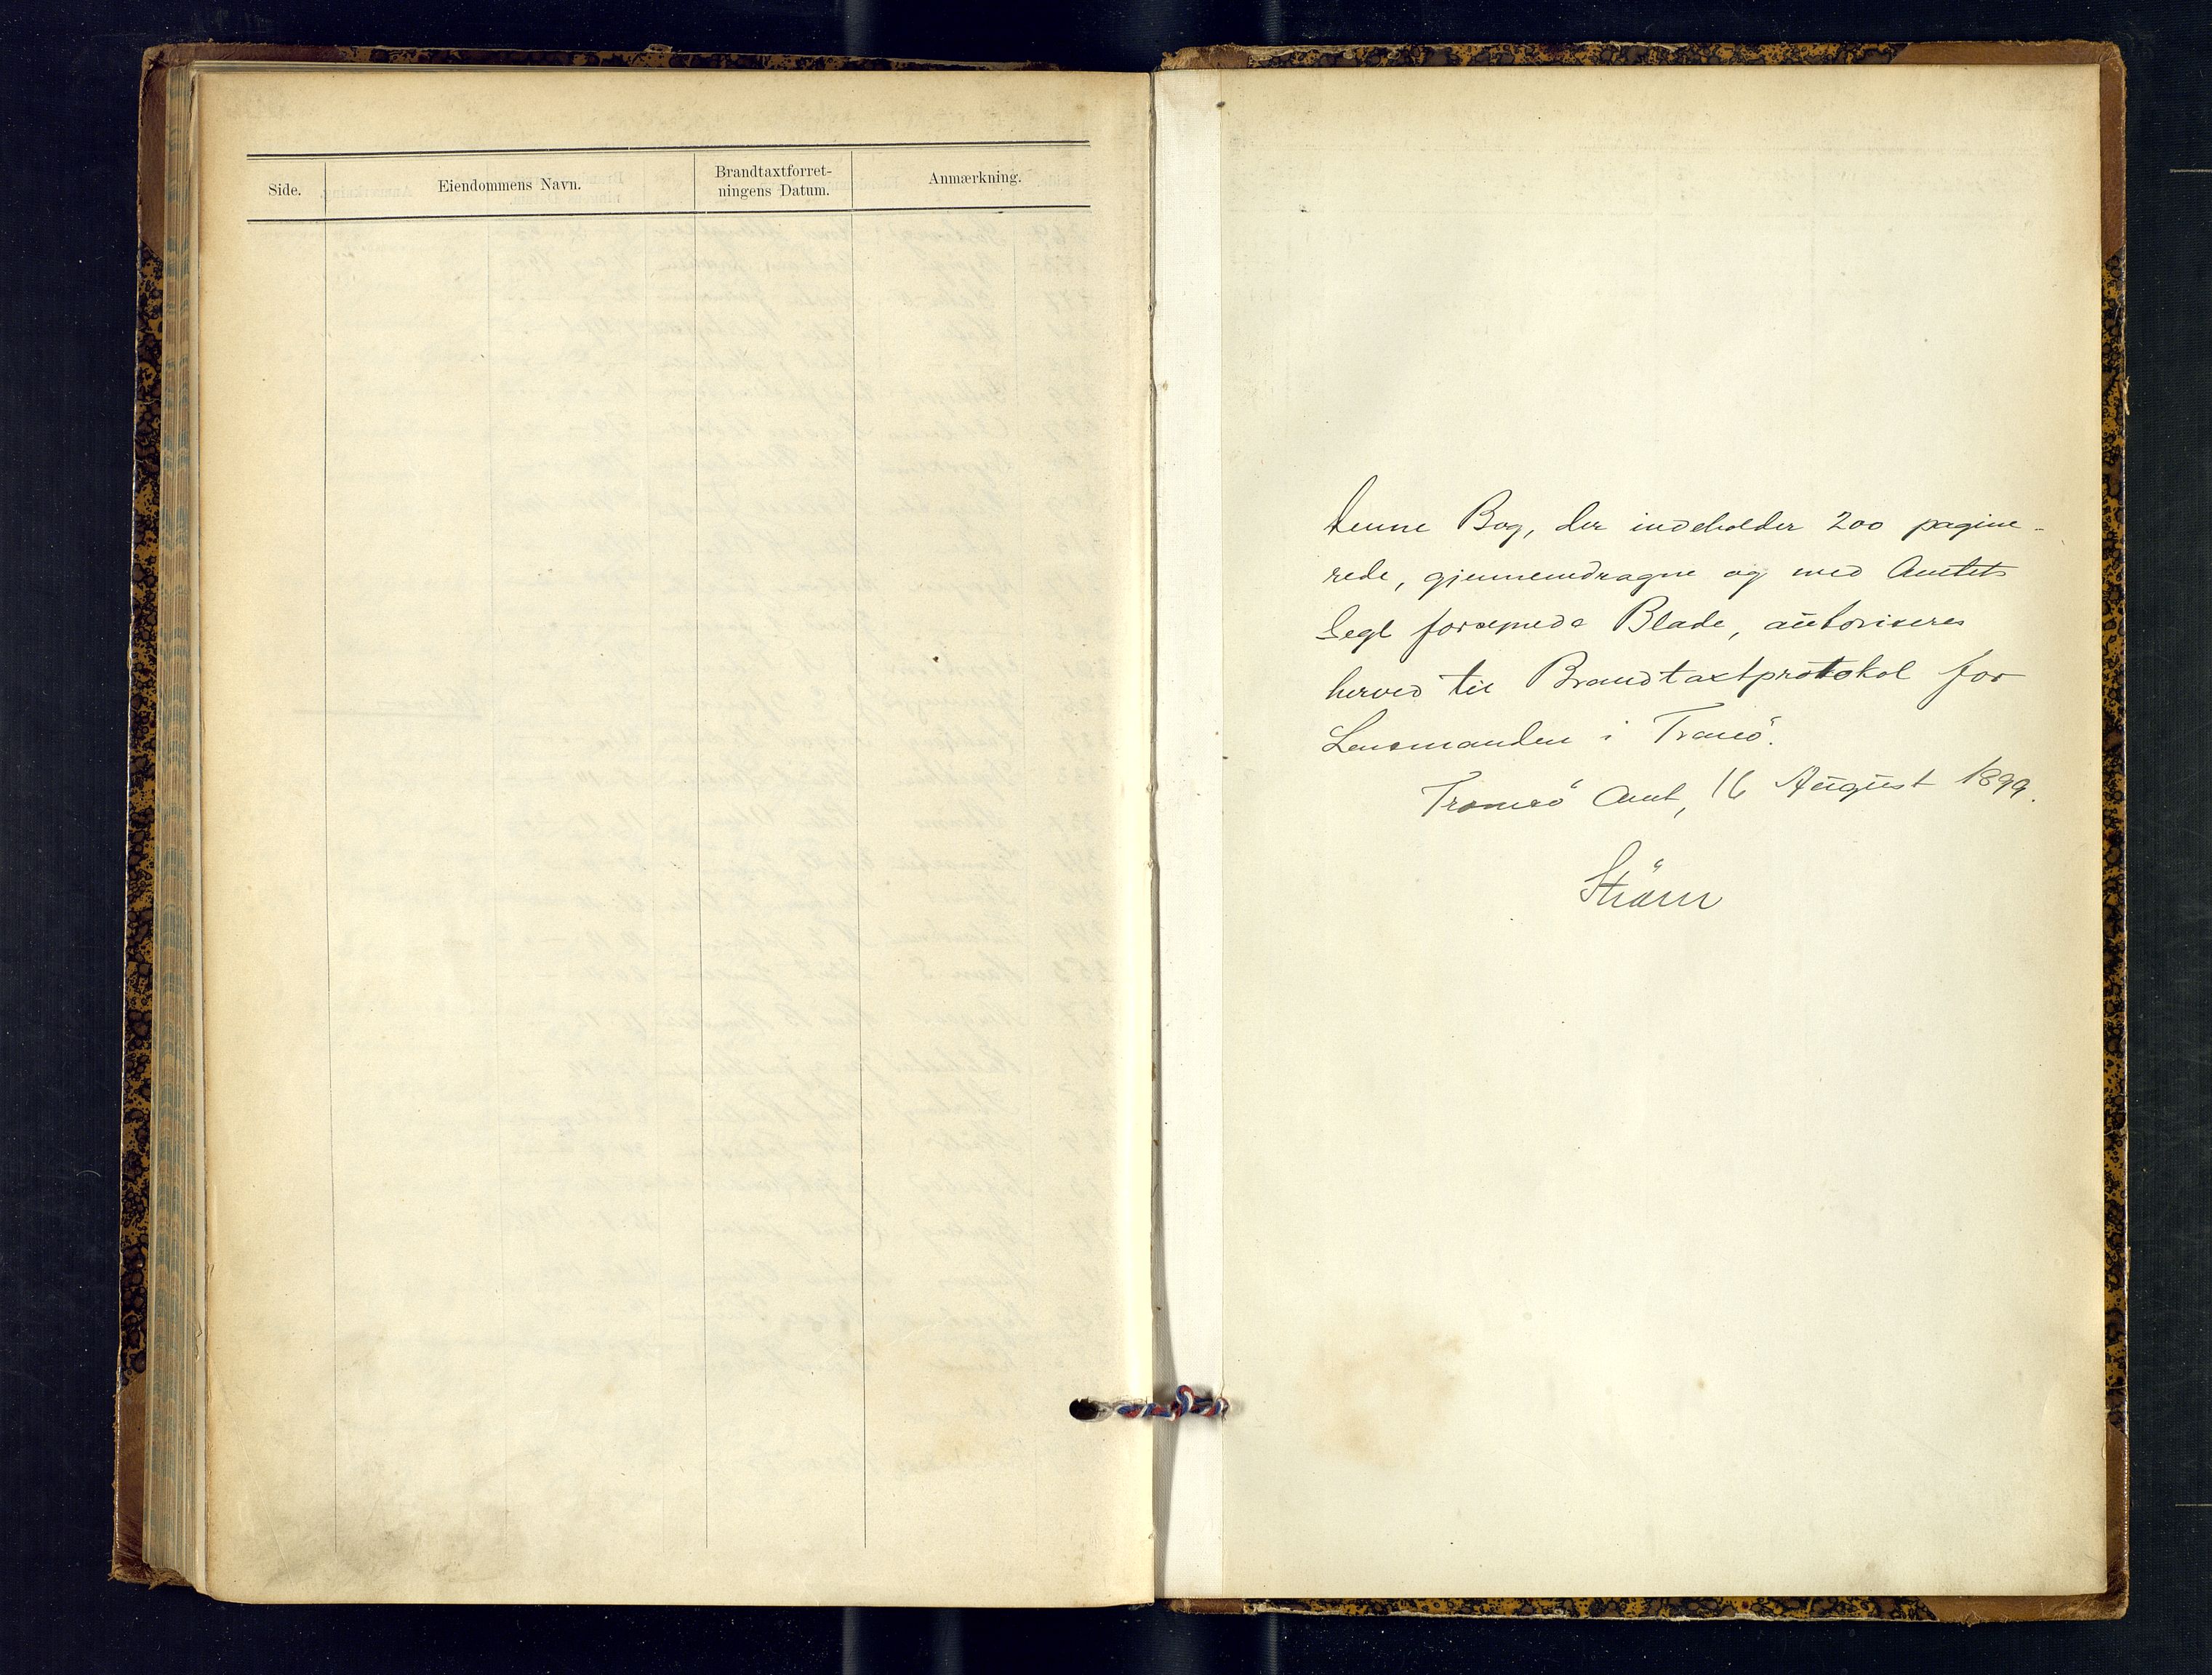 Side.
Eiendommens Navn.
Brandtaxtforret-
ningens Datum.
Anmærkning.
Denne Bog, der indeholder 200 pagine-
rede, gjennemdragne og med Amtets
Segl forsynede Blade, autoriseres
herved til Brandtaxtprotokol for
Lensmanden i Tranö.
Tromsö Amt, 16 August 1899.
Ström